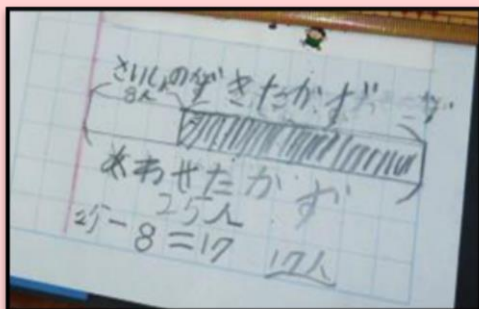 さいしょのかず きたかず
8人
あわせたかず
25人
25-8=17 17人